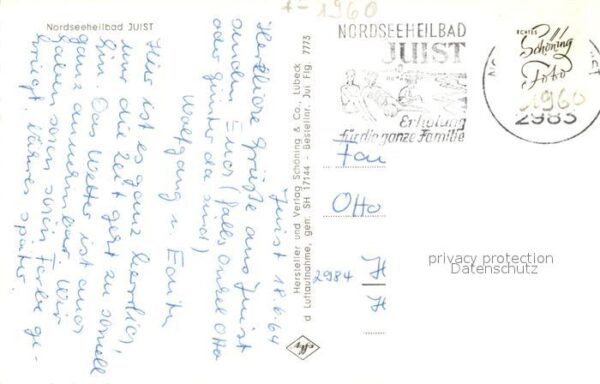 Nordseeheilbad JUIST
Juist 18.6.64
Herzliche Grüße aus Juist
senden Euch (falls Onkel Otto
oder Günter da sind)
Wolfgang u. Edith
Hier ist es ganz herrlich,
nur die Zeit geht zu schnell
hin. Das Wetter ist auch
ganz annehmbar. Wir
haben schon schön Farbe ge-
kriegt. Näheres später.
Hersteller und Verlag Schöning & Co., Lübeck
d Luftaufnahme, gen. SH 17144 Bestellnr. Jui. Flg. 7773
effy
1960
NORDSEEHEILBAD
JUIST
Erholung
für die ganze Familie
ECHTES
Schöning
Foto
1960
2983
Otto
2984
privacy protection
Datenschutz